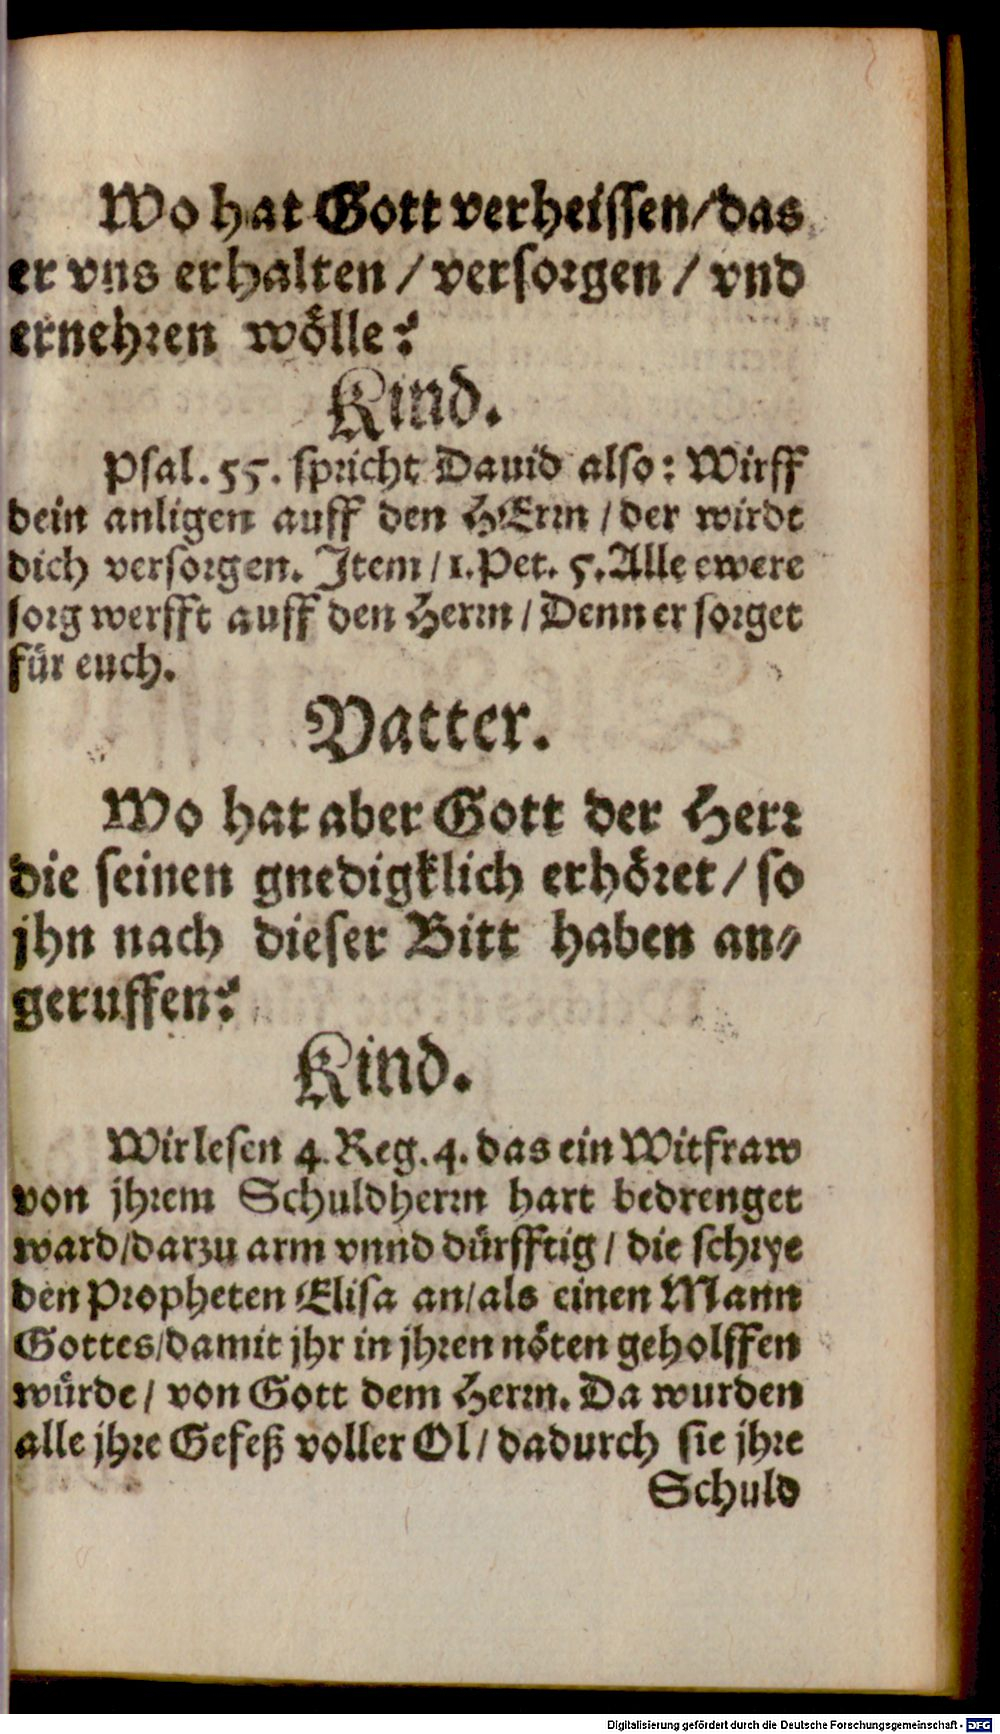 Wo hat Gott verheissen/das
er vns erhalten / versorgen / vnd
ernehren wölle?
Kind.
Psal. 55. spricht Dauid also: Wirff
dein anligen auff den HErrn / der wirdt
dich versorgen. Item / 1. Pet. 5. Alle ewere
sorg werfft auff den Herrn / Denn er sorget
für euch.
Vatter.
Wo hat aber Gott der Herr
die seinen gnedigklich erhöret / so
jhn nach dieser Bitt haben an-
geruffen?
Kind.
Wir lesen 4. Reg. 4. das ein Witfraw
von jhrem Schuldherrn hart bedrenget
ward/darzu arm vnnd dürfftig / die schrye
den Propheten Elisa an/als einen Mann
Gottes/damit jhr in jhren nöten geholffen
würde / von Gott dem Herrn. Da wurden
alle jhre Gefeß voller Ol / dadurch sie jhre
Schuld
Digitalisierung gefördert durch die Deutsche Forschungsgemeinschaft - DFG